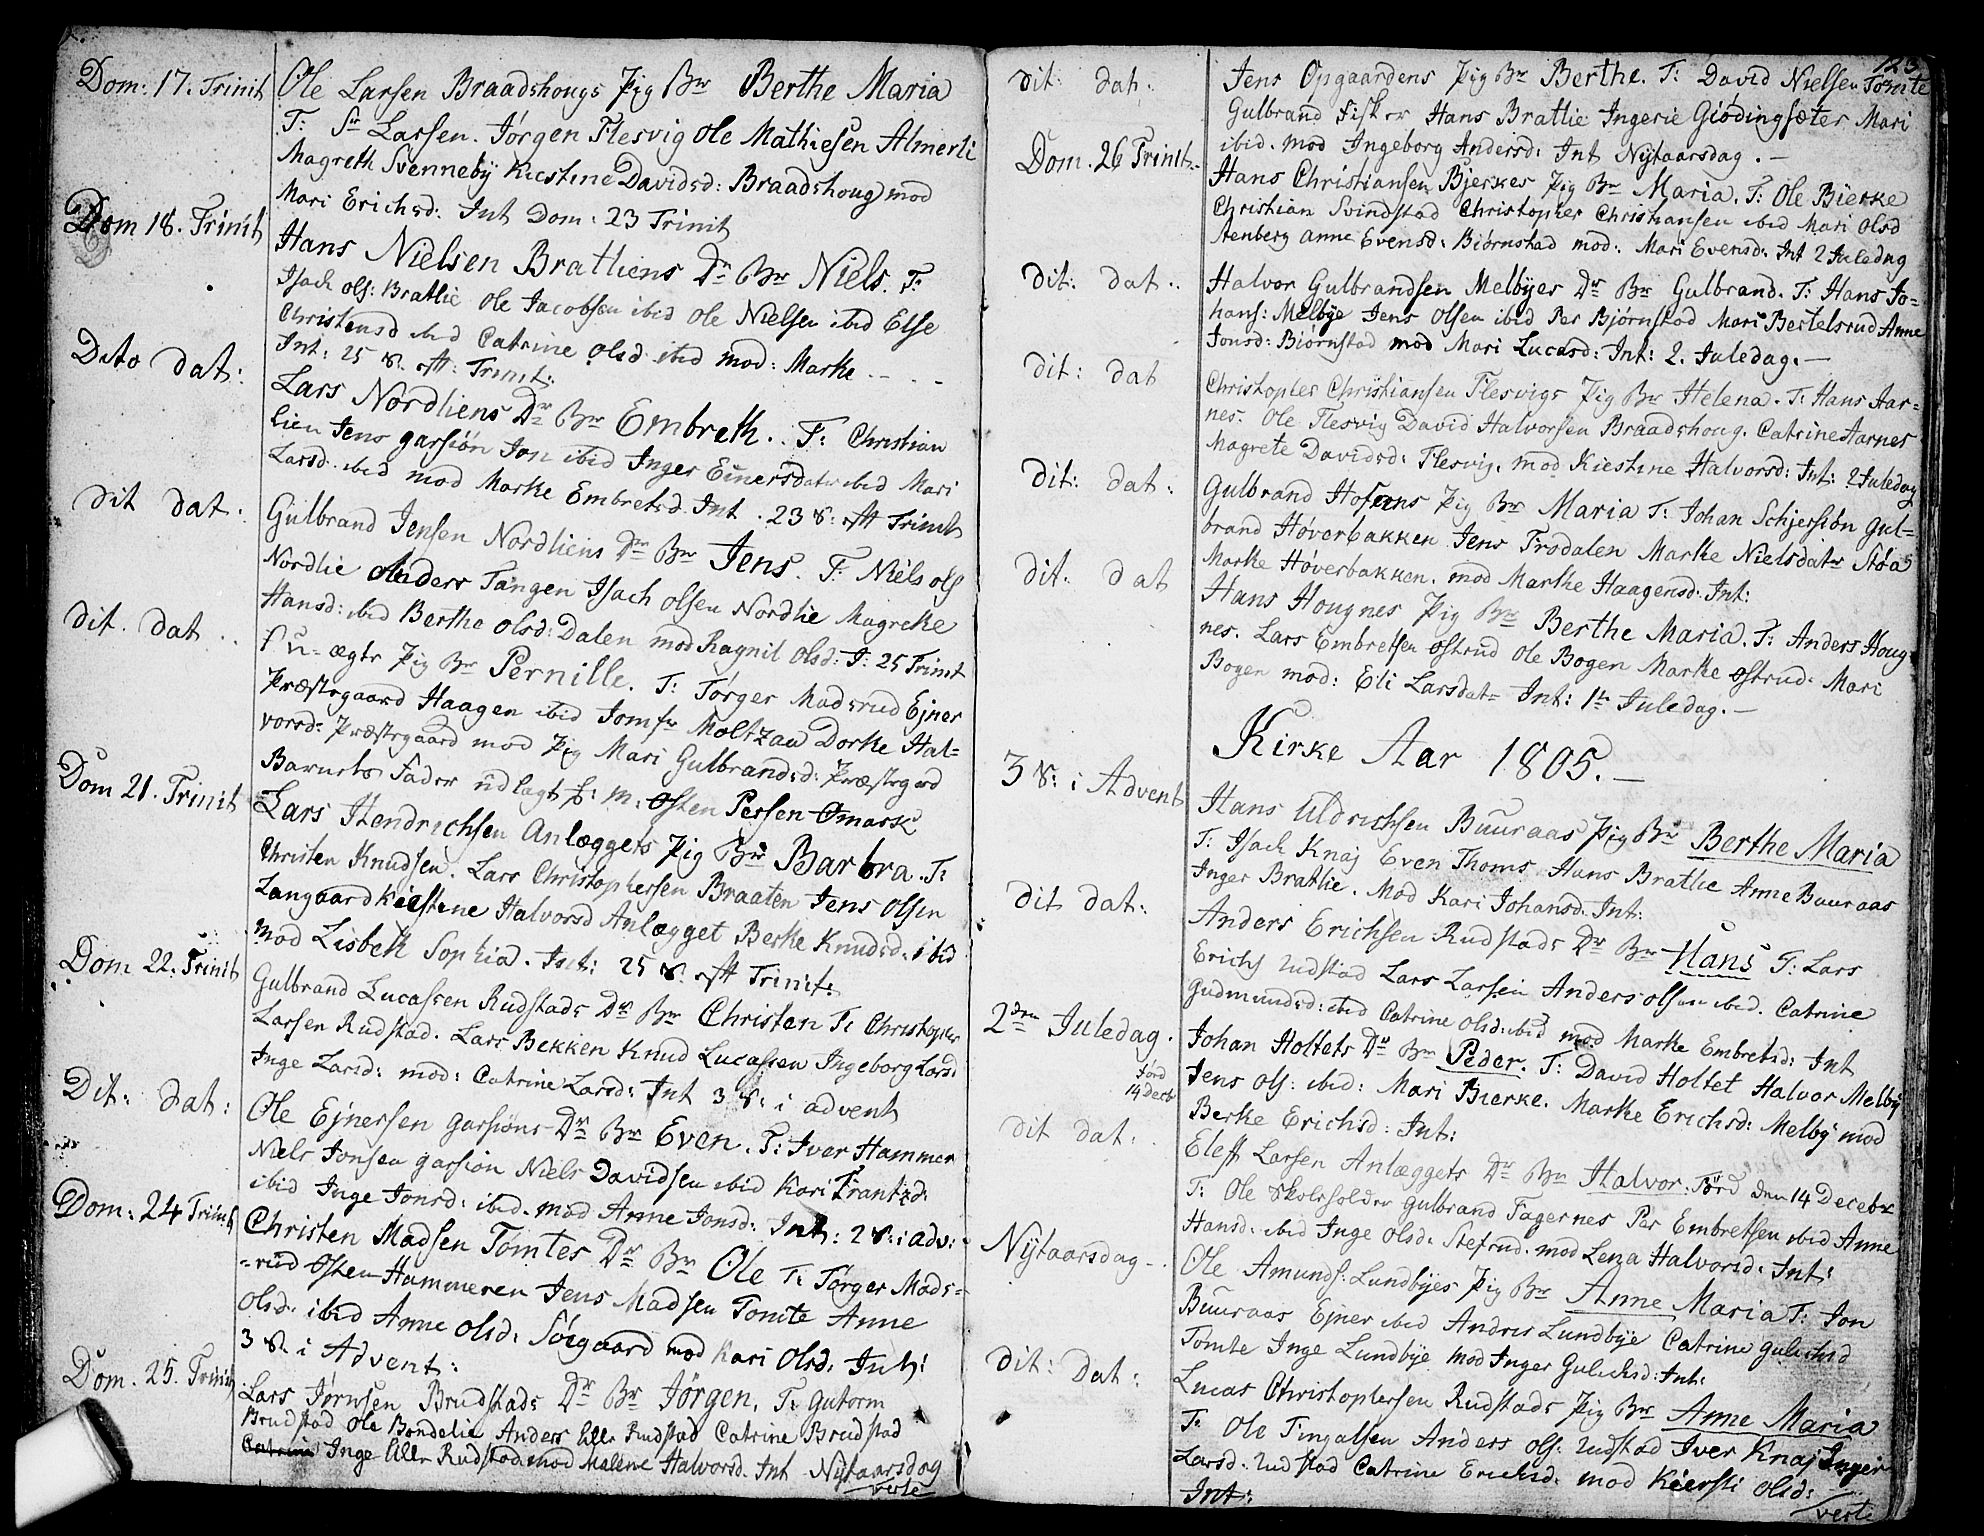 Dom: 17. Trinit
Ole Larsen Braadshougs Pig Br Berthe Maria
T: Sr Larsen. Jørgen Flesvig Ole Mathiesen Almerli
Magreth Svenneby Kiestine Davidsd: Braadshoug mod
Mari Erichsd: Int Dom: 23 Trinit
Dom 18. Trinit
Hans Nielsen Bratliens Dr Br Niels. T:
Isach Ols: Bratlie Ole Jacobsen ibid Ole Nielsen ibid Else
Christensd ibid Catrine Olsd ibid mod: Marthe
Int: 25 S. eftr: Trinit:
Dito dat:
Lars Nordliens Dr Br Embreth. T: Christian
Lien Jens Garsiøn Jon ibid Inger Einersdatr ibid Mari
Larsd. ibid mod Marthe Embretsd. Int. 23 S: eftr Trinit
dit dat:
Gulbrand Jensen Nordliens Dr Br Jens. T: Niels Ols
Nordlie Anders Tangen Isach Olsen Nordlie Magrethe
Hansd: ibid Berthe Olsd: Dalen mod Ragnil Olsd: I: 25 Trinit
dit. dat..
u-ægte Pig Br Pernille. T: Tørger Madsrud Ejner
Præstegaard Haagen ibid Jomfr Moltzau Dorthe Hal-
vorsd: Præstegaard mod Pig Mari Gulbrandsd: Præstegrd
Barnets Fader udlagt S: M: Østen Persen Ømark
Dom 21. Trinit
Lars Hendrichsen Anlæggets Pig Br Barbra. T:
Christen Knudsen. Lars Christophersen Braaten Jens Olsen
Langaard Kiestene Halvorsd Anlægget Berthe Knudsd. ibid
mod Lisbeth Sophia. Int: 25 S. eftr Trinit:
Dom 22. Trinit
Gulbrand Lucassen Rudstads Dr Br Christen T: Christopher
Larsen Rudstad. Lars Bekken Knud Lucassen Ingeborg Larsd
Inge Larsd: mod: Catrine Larsd: Int 3 S: i advent
Dit: dat:
Ole Ejnersen Garsiøns Dr Br Even. T: Iver Hammer
Niels Jonsen Garsiøn Niels Davidsen ibid Kari Frantzd:
ibid Inge Jonsd: ibid. mod Anne Jonsd: Int: 2 S: i adv:
Dom: 24 Trinit
Christen Madsen Tomtes Dr Br Ole T: Tørger Mads-
-rud Østen Hammeren Jens Madsen Tomte Anne
Olsd: ibid Anne Olsd: Søegaard mod Kari Olsd: Int:
3 S. i Advent:
Dom. 25. Trinit
Lars Jørnsen Brudstads Dr Br Jörgen. T: Gutorm
Brudstad Ole Bondelie Anders Lille Rudstad Catrine Brudstad
Catrine Inge Lille Rudstad mod Malene Halvorsd. Int Nytaarsdag
verte
123
dit: dat:
Jens Opgaardens Pig Br Berthe. T: David Nielsen Tomte
Gulbrand Fisker Hans Bratlie Ingerie Giødingsæter Mari
ibid. mod Ingeborg Andersd: Int Nytaarsdag.
Dom. 26 Trinit.
Hans Christiansen Bjerkes Pig Br Maria. T: Ole Bierke
Christian Svindstad Christopher Christiansen ibid Mari Olsd
Stenberg Anne Evensd: Biørnstad mod: Mari Evensd: Int 2 Juledag
dit: dat..
Halvor Gulbrandsen Melbyes Dr Br Gulbrand. T: Hans Jo-
hans: Melbye Jens Olsen ibid Per Bjørnstad Mari Bertelsrud Anne
Jonsd: Biørnstad mod Mari Lucasd: Int: 2. Juledag.
dit: dat
Christopher Christiansen Flesvigs Pig Br Helena. T: Hans Aar-
nes. Ole Flesvig David Halvorsen Braadshoug. Catrine Aarnes
Magrete Davidsd: Flesvig. mod Kiestine Halvorsd: Int: 2 Juledag
dit: dat:
Gulbrand Hofsens Pig Br Maria T: Johan Schjersiøn Gul-
brand Høverbakken Jens Trodalen Marthe Nielsdatr Støa
Marthe Høverbakken. mod Marthe Haagensd. Int:
dit. dat
Hans Hougnes Pig Br Berthe Maria. T: Anders Houg
nes. Lars Embretsen Østrud Ole Bogen Marthe Østrud. Mari
Bogen mod: Eli Larsdatr Int: 1te Juledag.
Kirke Aar 1805.
3 S: i Advent
Hans Uldrichsen Buuraas Pig Br Berthe Maria
T: Isach Knaj Even Thoms. Hans Bratlie Anne Buuraas
Inger Bratlie. Mod Kari Johansd. Int:
dit dat:
Anders Erichsen Rudstads Dr Br Hans T: Lars
Erichs Rudstad Lars Larsen Anders Olsen ibid. Catrine
Gudmundsd: ibid Catrine Olsd: ibid mod Marthe Embretsd: Int
2den Juledag.
Johan Holtets Dr Br Peder. T: David Holtet Halvor Melby
Jens Ols: ibid: Mari Bierke. Marthe Erichsd: Melby mod
Berthe Erichsd: Int:
14 Decbr
dit dat:
Eleff Larsen Anlæggets Dr Br Halvor. Førd den 14 Decebr
T: Ole Skoleholder Gulbrand Fagernes Per Embretsen ibid Anne
Hansd: ibid Inge Olsd: Stefrud. mod Lena Halvorsd: Int:
Nytaarsdag
Ole Amunds: Lundbyes Pig Br Anne Maria T: Jon
Buuraas Ejner ibid Andres Lundbye Catrine Gulichsd
Tomte Inge Lundbye mod Inger Gulichsd: Int:
dit: dat:
Lucas Christophersen Rudstads Pig Br Anne Maria
T: Ole Tingalsen Anders Ols: Rudstad Iver Knaj Inger
Larsd. Rudstad Catrine Erichsd: mod Kiersti Olsd:
Int:
verte